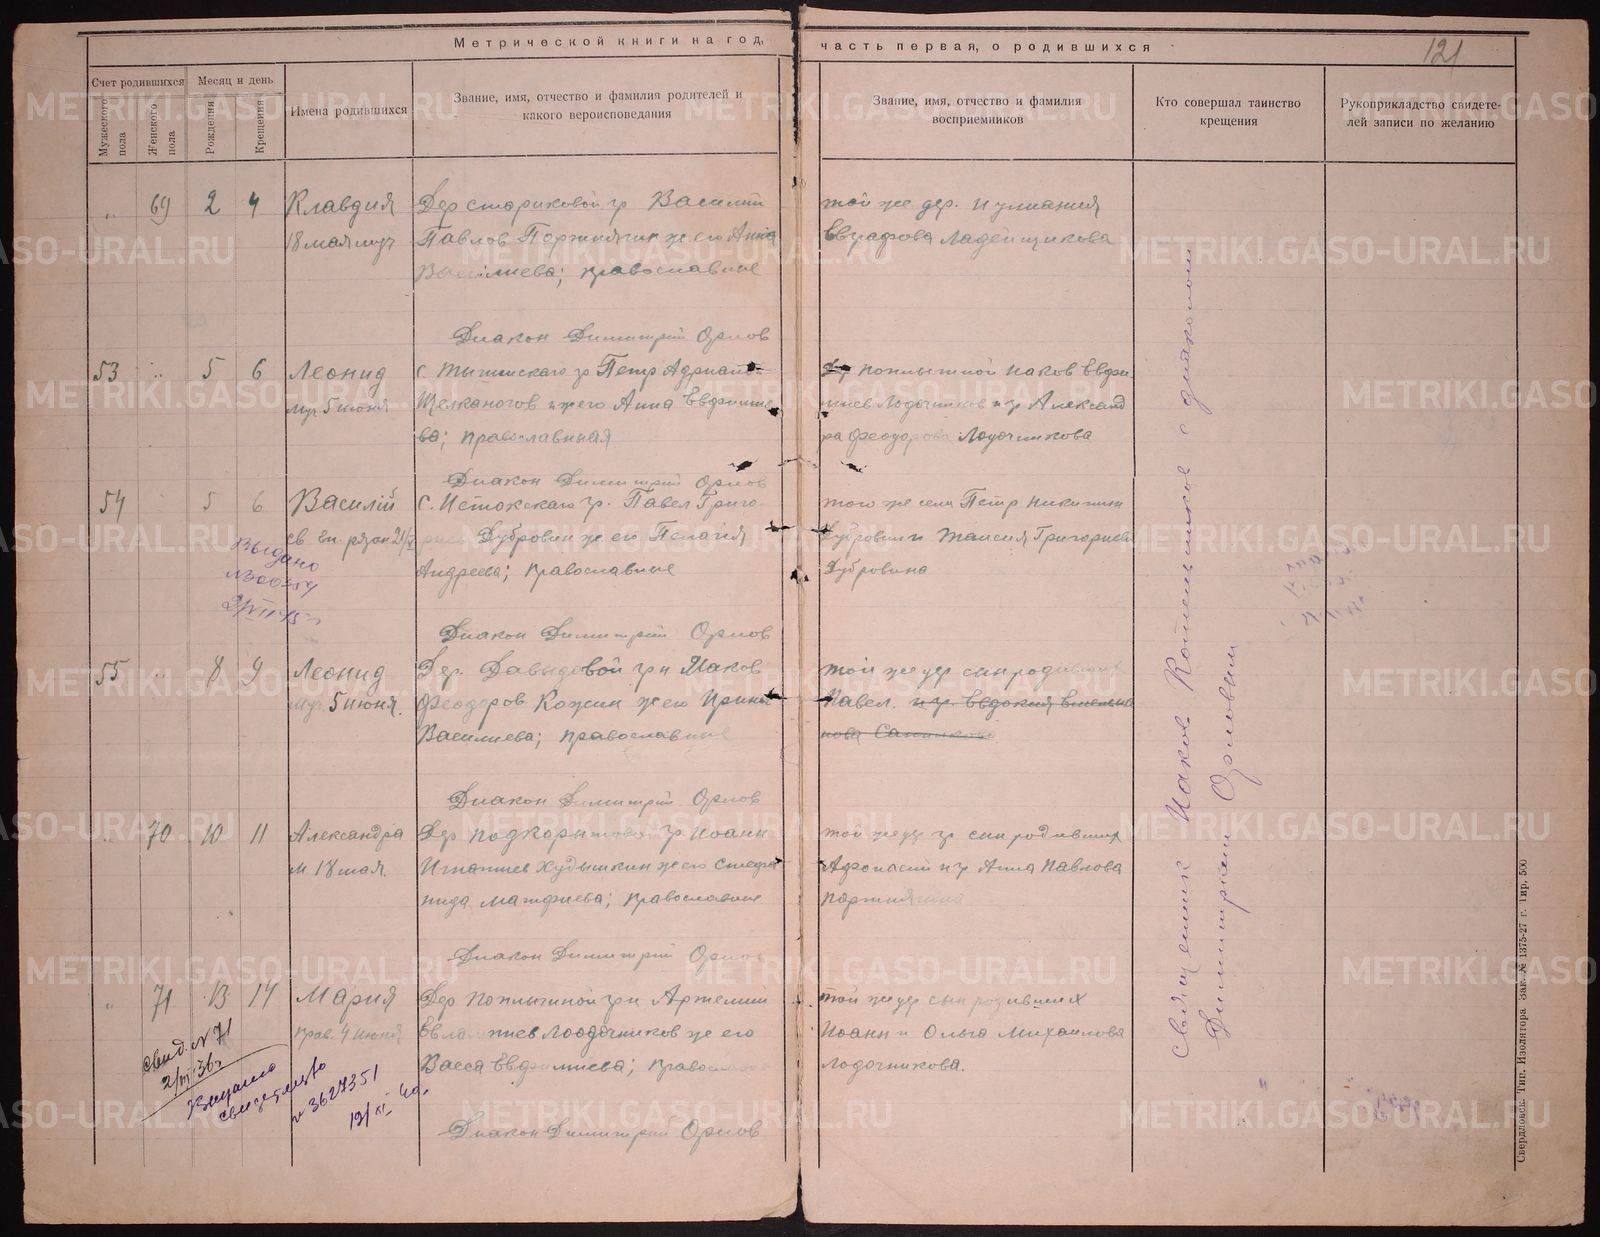 Метрической книги на год,
часть первая, о родившихся
121
Счет родившихся
Месяц и день
Мужеского пола
Женского пола
Рождения
Крещения
Имена родившихся
Звание, имя, отчество и фамилия родителей и
какого вероисповедания
Звание, имя, отчество и фамилия
восприемников
Кто совершал таинство
крещения
Рукоприкладство свидете-
лей записи по желанию
„ 69 2 4 Клавдия
18 мая муч
Дер Стариковой гр Василий
Павлов Поржнягин ж его Анна
Василиева; православные
Диакон Димитрий Орлов
той же дер. Иулиания
Ладейщикова
53 „ 5 6 Леонид
муч 5 июня
с. гр Петр
Щелканогов и ж его Анна Ефимие
ва; православная
Диакон Димитрий Орлов
Иаков Евфи
миев Лодочников и гр Александ
ра Феодорова Лодочникова
54 5 6 Василий
св еп. рязан
Выдано
с. Истокского гр. Павел Григо
риев Дубровин ж его Пелагия
Андреева; православные
Диакон Димитрий Орлов
того же села Петр Никитин
Дубровин и Таисия Григориева
Дубровина
55 „ 8 9 Леонид
муч. 5 июня.
Дер. Давыдовой гр-н Иаков
Феодоров Кожин ж его Ирина
Василиева; православные
Диакон Димитрий Орлов
той же дер сын родивших
Павел. и гр. Евдокия
„ 70 10 11 Александра
м 18 мая.
Дер Подкорытовой гр Иоанн
Игнатиев Худышкин ж его Стефа
нида Матфиева; православные
Диакон Димитрий Орлов
той же де гр сын родивших
Афонасий и гр Анна Павлова
Поржнягина
„ 71 13 14 Мария
прав. 4 июня
Дер Поплыгиной гр-н Артемий
Евлампиев Лоодочников ж его
Васса Евфимиева; православные
Диакон Димитрий Орлов
той же дер сын родивших
Иоанн и Ольга Михаилова
Лодочникова.
Свид. N 71
2/III 36 г
Выдано
свидетельство
№ 3627351
19/XI 40.
Священник Иаков Котельников с диаконом
Димитрием Орловым
Свердловск. Тип. Изолятора Зак. № 1375-27 г. Тир. 500
METRIKI.GASO-URAL.RU